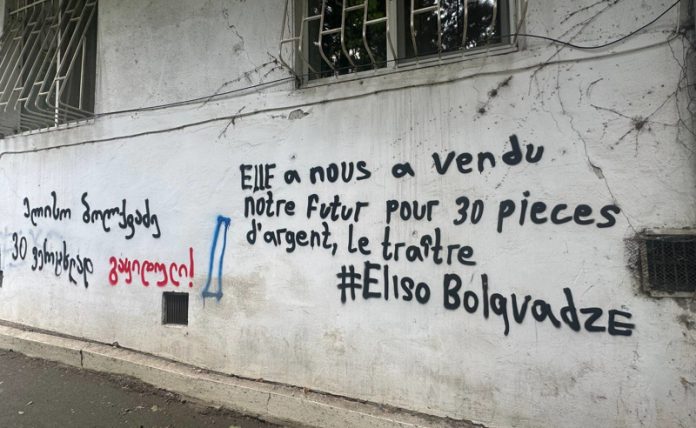 ელისო ბოლქვაძე
30 ვერცხლად გაყიდული!
EllE a nous a vendu
notre Futur pour 30 pieces
d'argent, le traître
#Eliso BolqvadzE